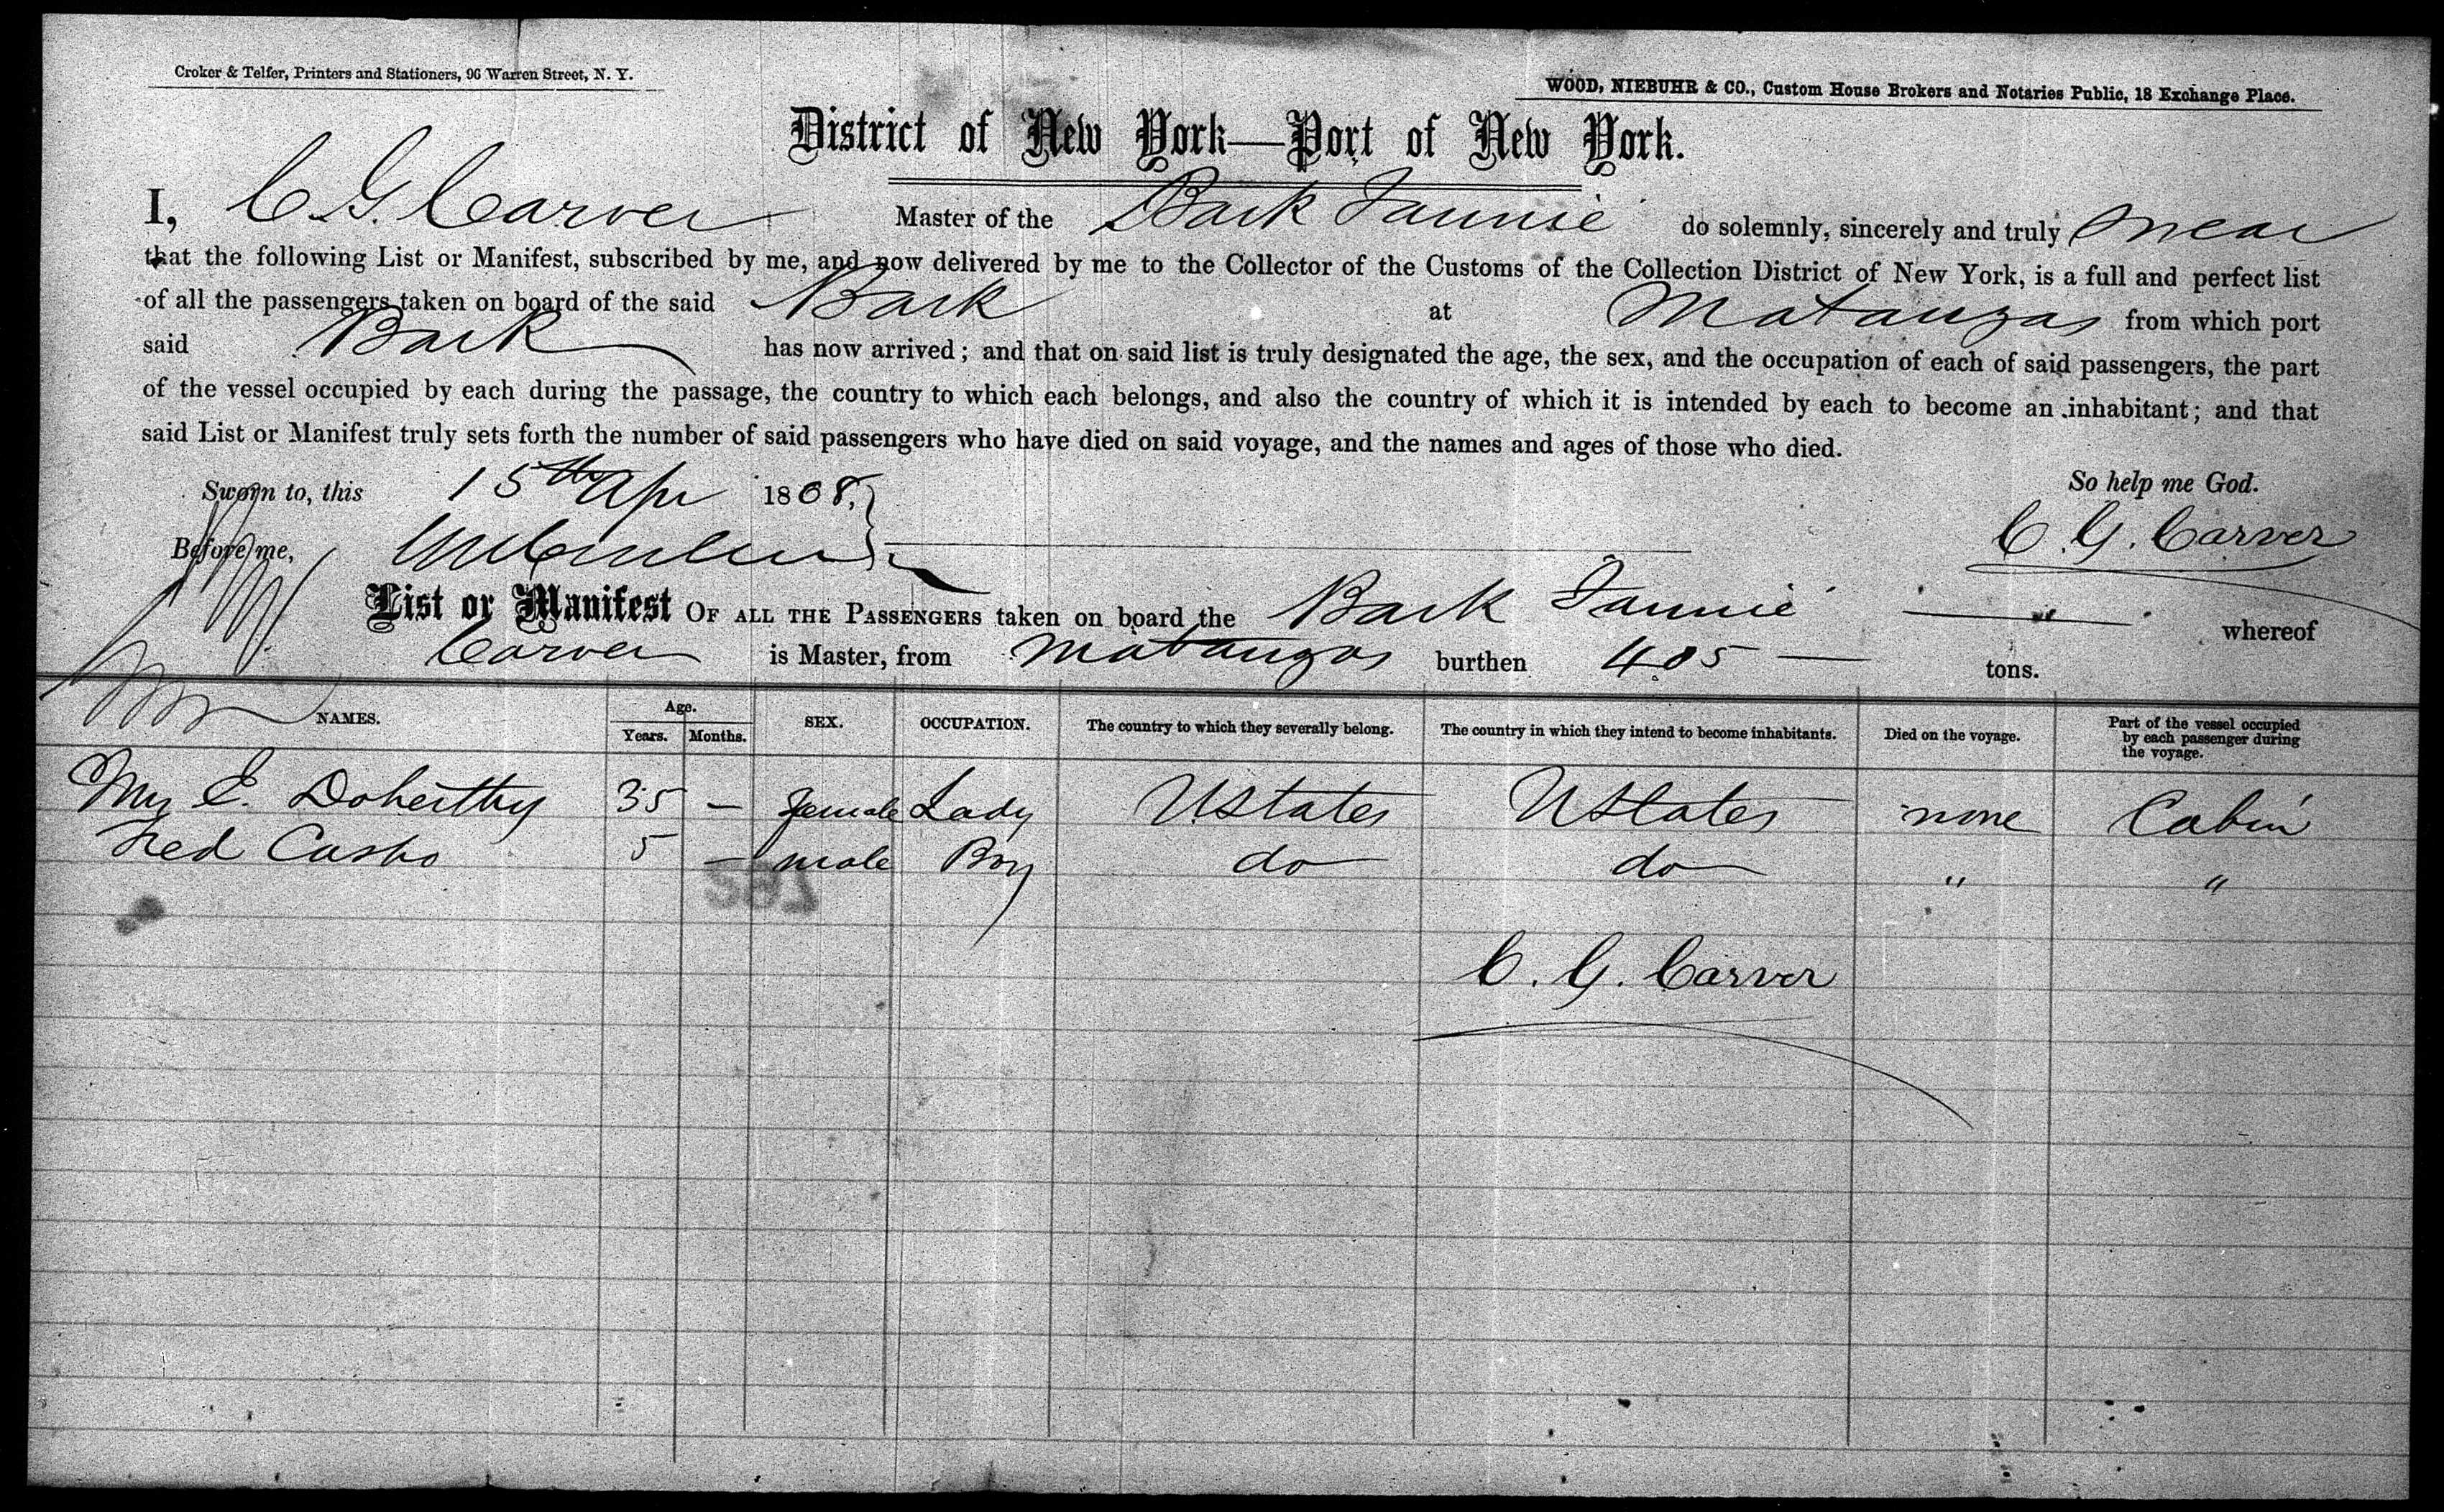 Croker & Telfer, Printers and Stationers, 96 Warren Street, N. Y.
WOOD, NIEBUHR & CO., Custom House Brokers and Notaries Public, 18 Exchange Place.
District of New York—Port of New York.
I, C G. Carver Master of the Bark Fannie do solemnly, sincerely and truly swear
that the following List or Manifest, subscribed by me, and now delivered by me to the Collector of the Customs of the Collection District of New York, is a full and perfect list
of all the passengers taken on board of the said Bark at Matanzas from which port
said Bark has now arrived; and that on said list is truly designated the age, the sex, and the occupation of each of said passengers, the part
of the vessel occupied by each during the passage, the country to which each belongs, and also the country of which it is intended by each to become an inhabitant; and that
said List or Manifest truly sets forth the number of said passengers who have died on said voyage, and the names and ages of those who died.
Sworn to, this 15th Apr 1868. So help me God.
Before me, C. G. Carver
List or Manifest OF ALL THE PASSENGERS taken on board the Bark Fannie whereof
Carver is Master, from Matanzas burthen 405 — tons.
NAMES. Age. Years. Months. SEX. OCCUPATION. The country to which they severally belong. The country in which they intend to become inhabitants. Died on the voyage. Part of the vessel occupied by each passenger during the voyage.
Mrs E. Doherthy 35 — female Lady UStates UStates none Cabin
Fred 5 — male Boy do do " "
282
C. G. Carver